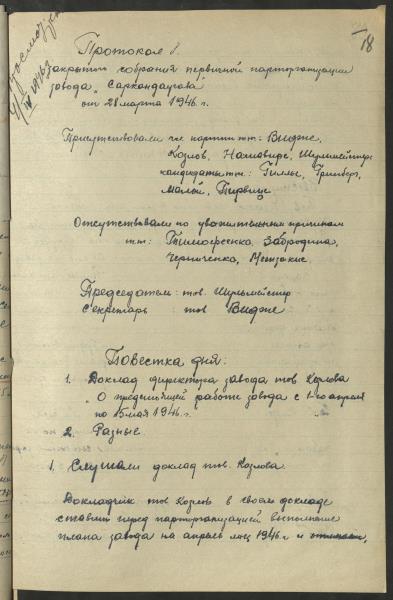 18
Протокол 8.
закрытого собрания первичной парторганизации
завода "Саркандаугава"
от 28 марта 1946 г.
Присутствовали чл. партии т.т: Видже,
Козлов, Шульмейстер
кандидаты т.т:
Отсутствовали по уважительным причинам
т.т: Тимофеенко, Забродина,
Черниченко,
Председатель: тов. Шульмейстер
Секретарь тов Видже
Повестка дня:
1. Доклад директора завода тов Козлова
"О предстоящей работе завода с 1-го апреля
по 15 мая 1946 г.
2. Разные
1. Слушали доклад тов. Козлова.
Докладчик тов Козлов в своем докладе
ставит перед парторганизацией выполнение
плана завода на апрель м-ц 1946 г. и